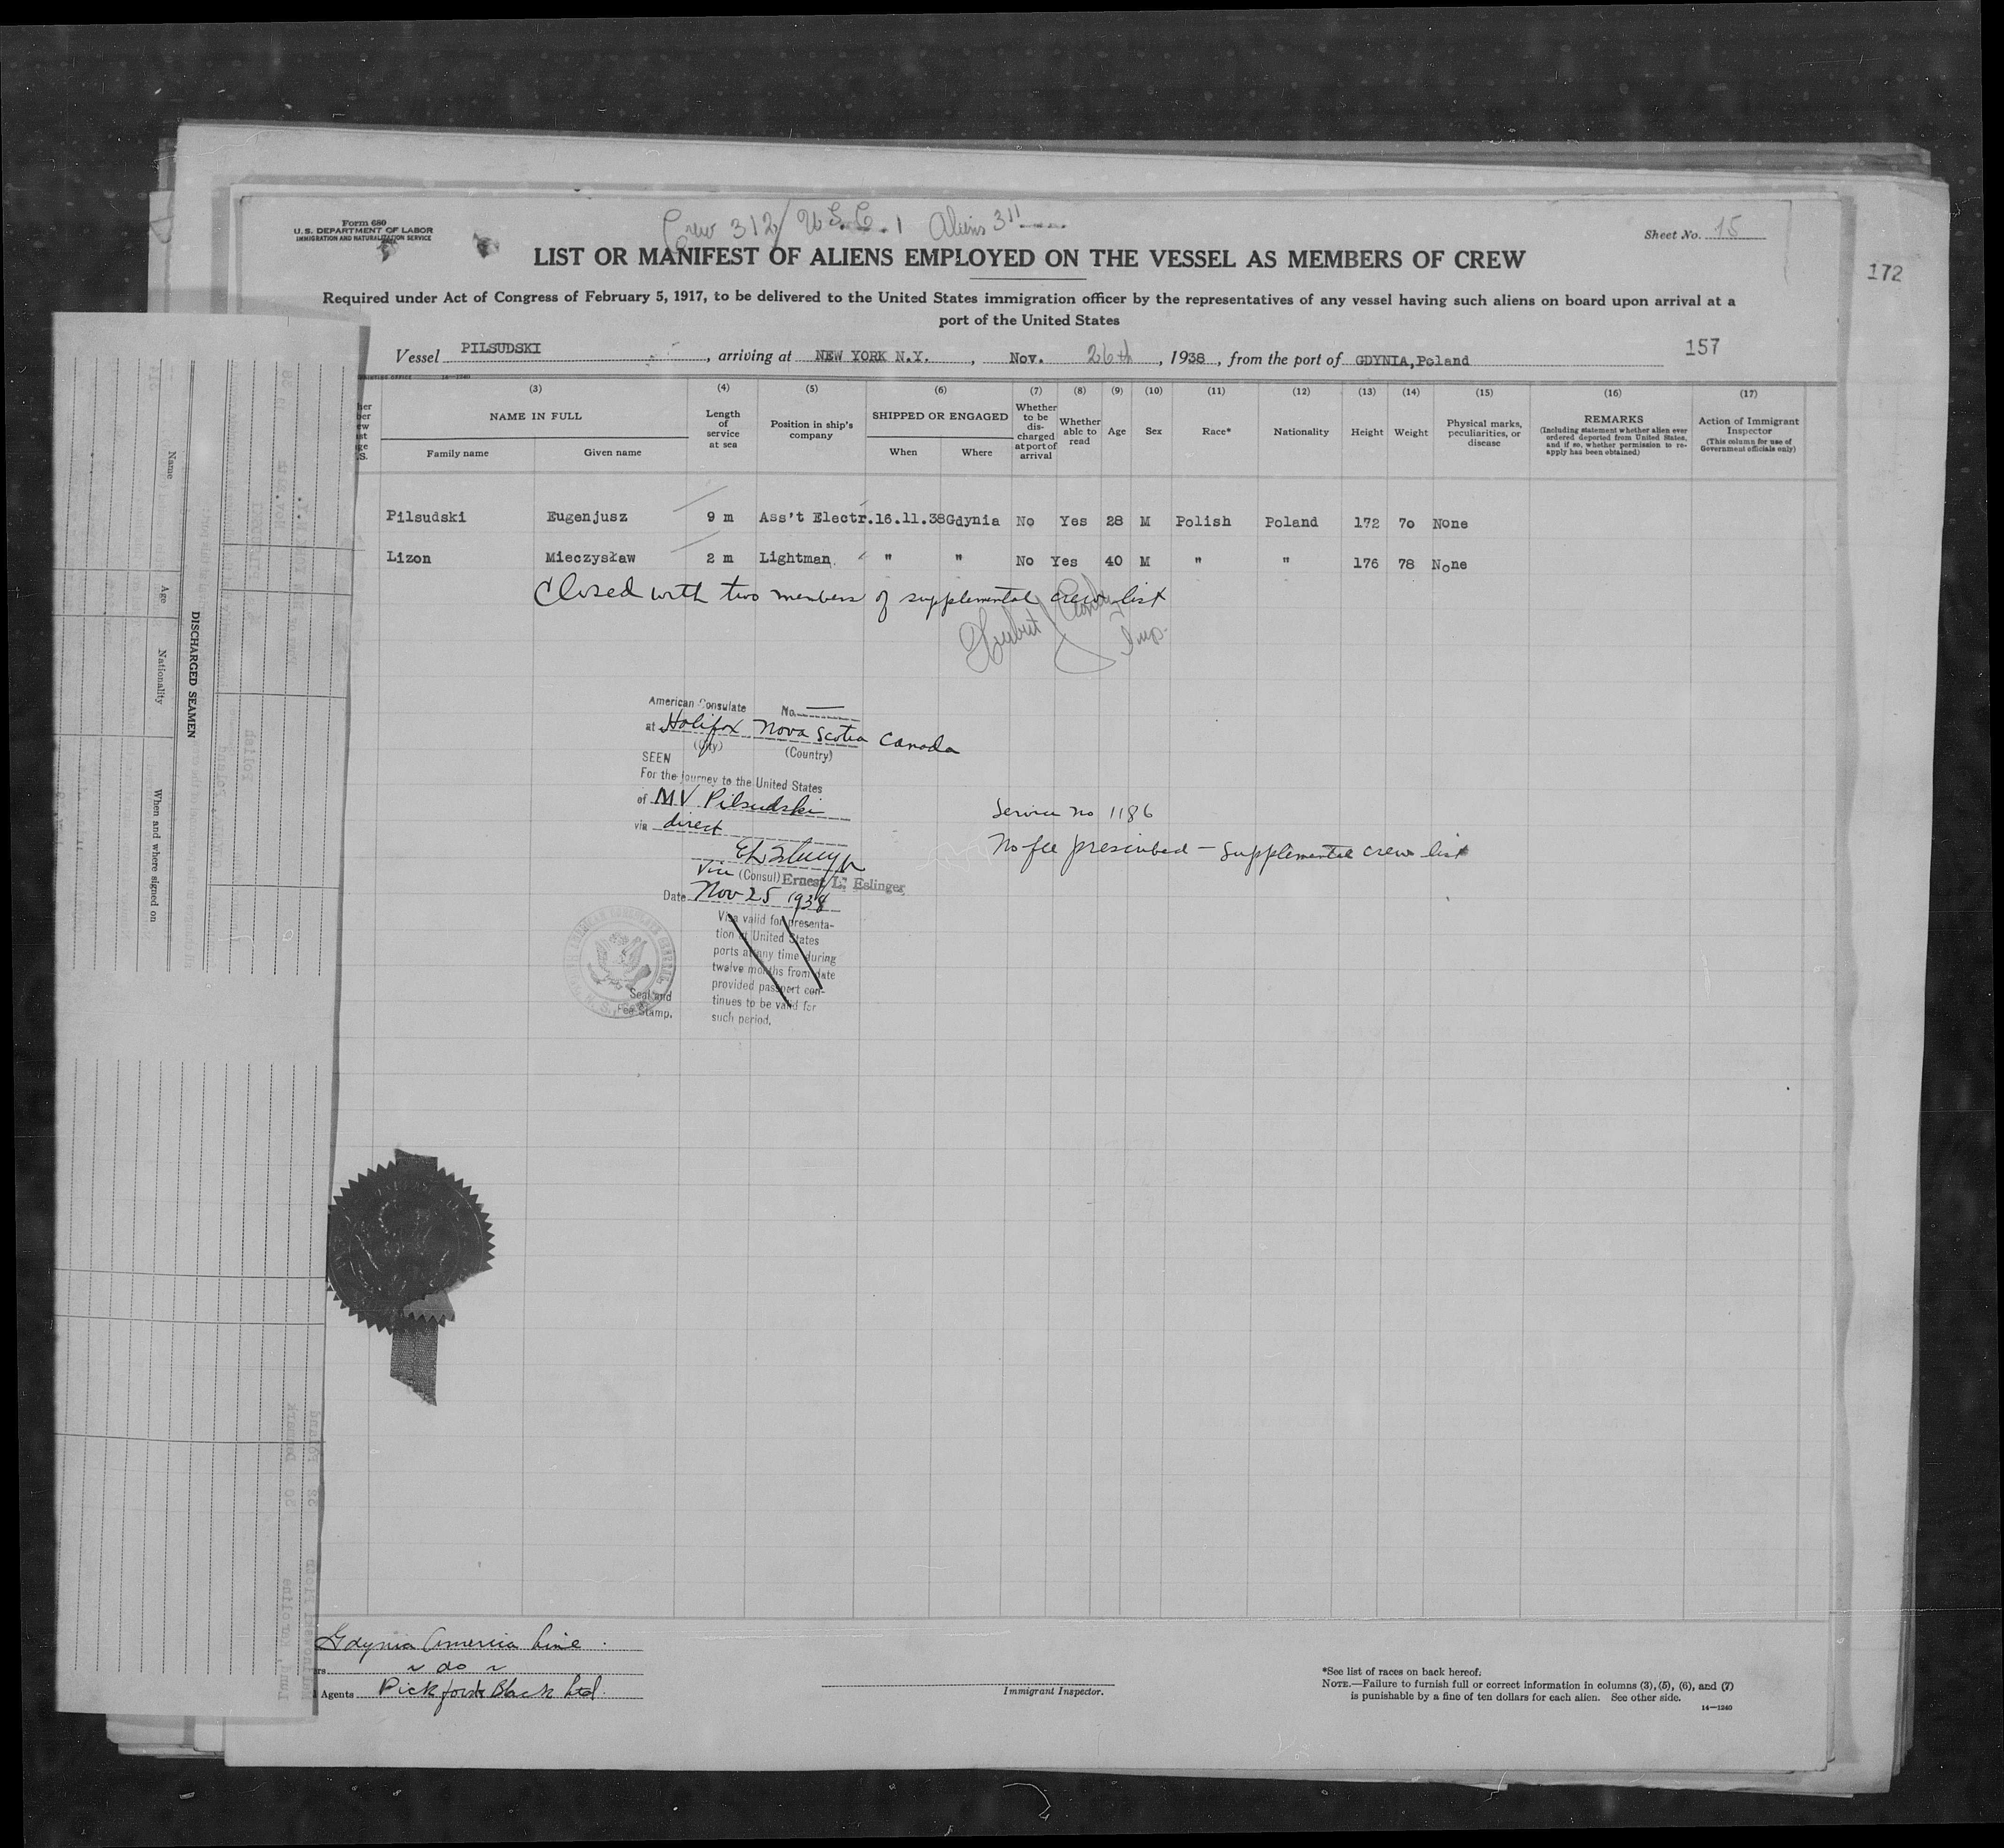 Form 680
U.S. DEPARTMENT OF LABOR
IMMIGRATION AND NATURALIZATION SERVICE
Crew 312/ U.S.C. 1 Aliens 311
Sheet No. 15
LIST OR MANIFEST OF ALIENS EMPLOYED ON THE VESSEL AS MEMBERS OF CREW
172
Required under Act of Congress of February 5, 1917, to be delivered to the United States immigration officer by the representatives of any vessel having such aliens on board upon arrival at a
port of the United States
Vessel PILSUDSKI, arriving at NEW YORK N.Y., Nov. 26th, 1938, from the port of GDYNIA, Poland
157
(3) (4) (5) (6) (7) (8) (9) (10) (11) (12) (13) (14) (15) (16) (17)
NAME IN FULL
Family name Given name
Length of service at sea
Position in ship's company
SHIPPED OR ENGAGED
When Where
Whether to be discharged at port of arrival
Whether able to read
Age
Sex
Race*
Nationality
Height
Weight
Physical marks, peculiarities, or disease
REMARKS
(Including statement whether alien ever ordered deported from United States, and if so, whether permission to reapply has been obtained)
Action of Immigrant Inspector
(This column for use of Government officials only)
Pilsudski Eugenjusz 9 m Ass't Electr. 16.11.38 Gdynia No Yes 28 M Polish Poland 172 70 None
Lizon Mieczysław 2 m Lightman " " No Yes 40 M " " 176 78 None
Closed with two members of supplemental crew list
Insp.
American Consulate No.
at Halifax Nova Scotia Canada
(City) (Country)
SEEN
For the journey to the United States
of M.V. Pilsudski
via direct
Vice (Consul) Ernest L. Eslinger
Date Nov 25 1938
Visa valid for presenta-
tion at United States
ports at any time during
twelve months from date
provided passport con-
tinues to be valid for
such period.
Seal and
Fee Stamp.
Service no 1186
No fee prescribed — supplemental crew list
DISCHARGED SEAMEN
Name
Age
Nationality
When and where signed on
Gdynia America Line
" do "
Agents Pickford & Black Ltd.
Immigrant Inspector.
*See list of races on back hereof.
NOTE.—Failure to furnish full or correct information in columns (3), (5), (6), and (7)
is punishable by a fine of ten dollars for each alien. See other side.
14—1240